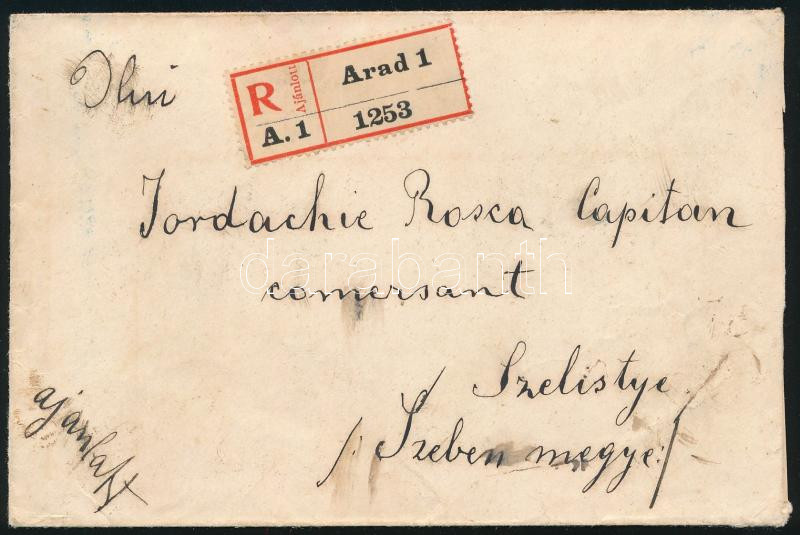 R Ajánlott Arad 1
A. 1 1253
Iordachie Rosca Capitan
comersant
Szelistye
/: Szeben megye :/
ajánlatt
darabanth